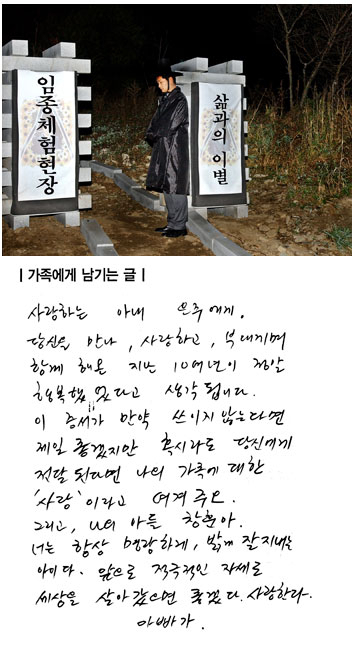 임종체험현장
삶과의 이별
| 가족에게 남기는 글 |
사랑하는 아내 은주에게.
당신을 만나, 사랑하고, 부대끼며
함께 해온 지난 10여년이 정말
행복했었다고 생각됩니다.
이 증서가 만약 쓰이지 않는다면
제일 좋겠지만 혹시라도 당신에게
전달 된다면 나의 가족에 대한
'사랑'이라고 여겨주오.
그리고, 나의 아들 창훈아.
너는 항상 명랑하게, 밝게 잘지내는
아이다. 앞으로 적극적인 자세로
세상을 살아갔으면 좋겠다. 사랑한다.
아빠가.